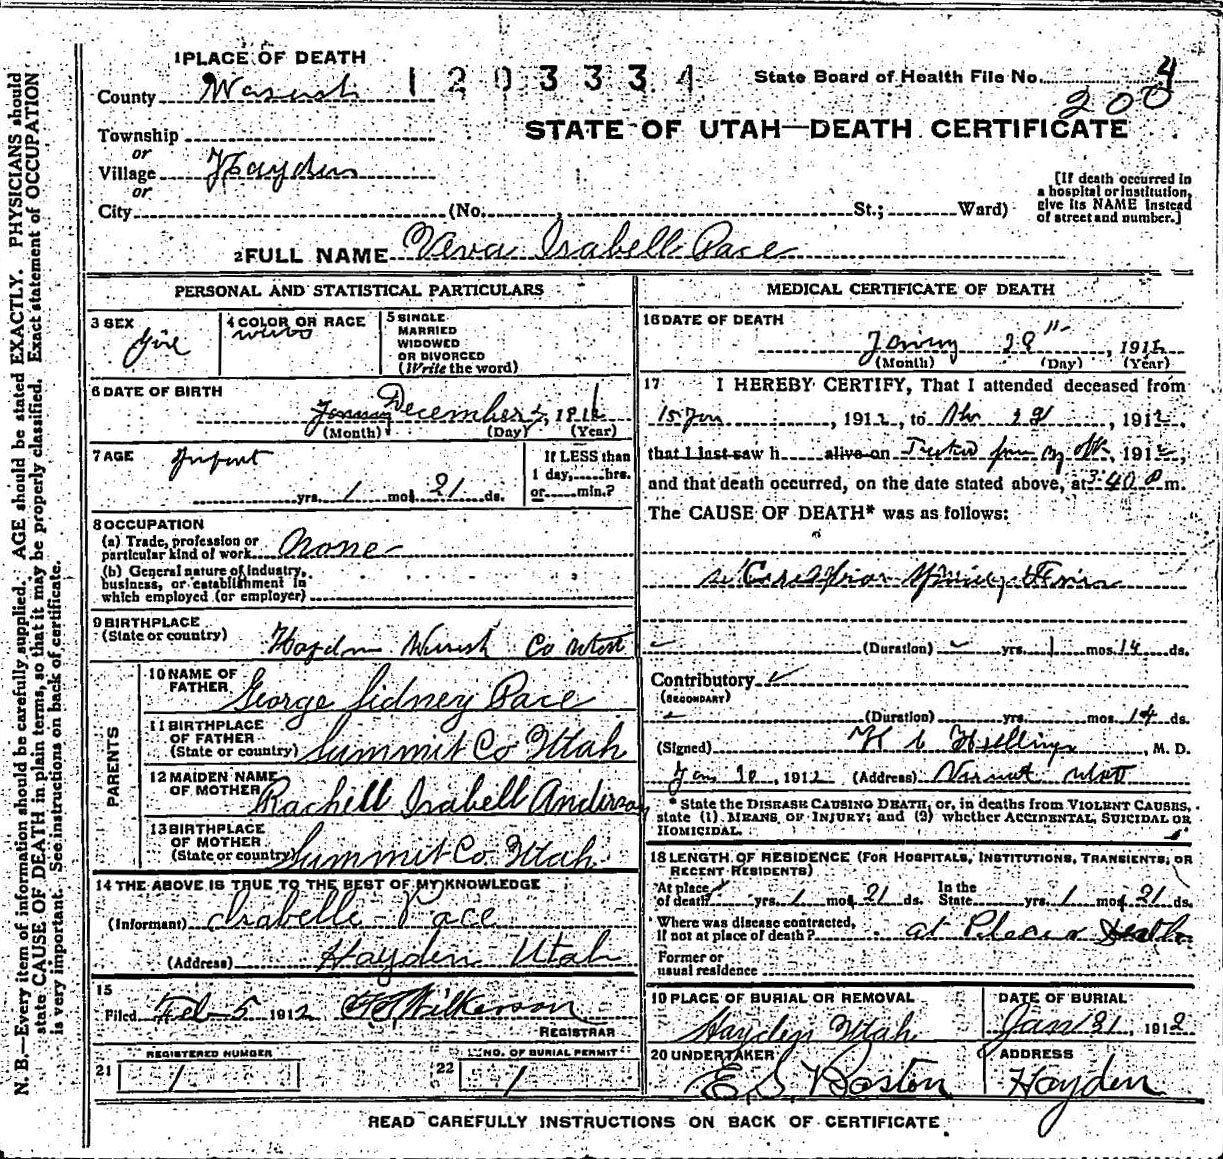 1 PLACE OF DEATH
1203334
State Board of Health File No. 4
200
County Wasatch
STATE OF UTAH—DEATH CERTIFICATE
Township
or
Village Hayden
or
[If death occurred in
a hospital or institution,
give its NAME instead
of street and number.]
City (No. St.; Ward)
2 FULL NAME Veva Isabell Pace
PERSONAL AND STATISTICAL PARTICULARS
3 SEX
Girl
4 COLOR OR RACE
5 SINGLE
MARRIED
WIDOWED
OR DIVORCED
(Write the word)
6 DATE OF BIRTH
December 191
(Month) (Day) (Year)
7 AGE Infant
yrs. 1 mos. 21 ds.
If LESS than
1 day, hrs.
or min.?
8 OCCUPATION
(a) Trade, profession or
particular kind of work None
(b) General nature of industry,
business, or establishment in
which employed (or employer)
9 BIRTHPLACE
(State or country) Hayden Co
PARENTS
10 NAME OF
FATHER George Sidney Pace
11 BIRTHPLACE
OF FATHER
(State or country) Summit Co Utah
12 MAIDEN NAME
OF MOTHER Rachell Isabell Anderson
13 BIRTHPLACE
OF MOTHER
(State or country) Summit Co Utah
14 THE ABOVE IS TRUE TO THE BEST OF MY KNOWLEDGE
(Informant) Isabelle Pace
(Address) Hayden Utah
15
Filed Feb 5 1912 Wilkerson
REGISTRAR
REGISTERED NUMBER
21 1
NO. OF BURIAL PERMIT
22 1
MEDICAL CERTIFICATE OF DEATH
16 DATE OF DEATH
29", 191
(Month) (Day) (Year)
17 I HEREBY CERTIFY, That I attended deceased from
15 Jan, 1912, to 1912,
that I last saw h alive on 1912,
and that death occurred, on the date stated above, at 3:40 P m.
The CAUSE OF DEATH* was as follows:
(Duration) yrs. 1 mos. 14 ds.
Contributory
(SECONDARY)
(Duration) yrs. mos. 14 ds.
(Signed) M. D.
Jan 30, 1912 (Address)
* State the DISEASE CAUSING DEATH, or, in deaths from VIOLENT CAUSES,
state (1) MEANS OF INJURY; and (2) whether ACCIDENTAL, SUICIDAL OR
HOMICIDAL.
18 LENGTH OF RESIDENCE (FOR HOSPITALS, INSTITUTIONS, TRANSIENTS, OR
RECENT RESIDENTS)
At place
of death yrs. 1 mos. 21 ds. In the
State yrs. 1 mos. 21 ds.
Where was disease contracted,
If not at place of death? at Place of Death
Former or
usual residence
19 PLACE OF BURIAL OR REMOVAL
Hayden Utah
DATE OF BURIAL
Jan 31, 1912
20 UNDERTAKER
E. S. Boston
ADDRESS
Hayden
READ CAREFULLY INSTRUCTIONS ON BACK OF CERTIFICATE.
N. B.—Every item of information should be carefully supplied. AGE should be stated EXACTLY. PHYSICIANS should
state CAUSE OF DEATH in plain terms, so that it may be properly classified. Exact statement of OCCUPATION
is very important. See instructions on back of certificate.